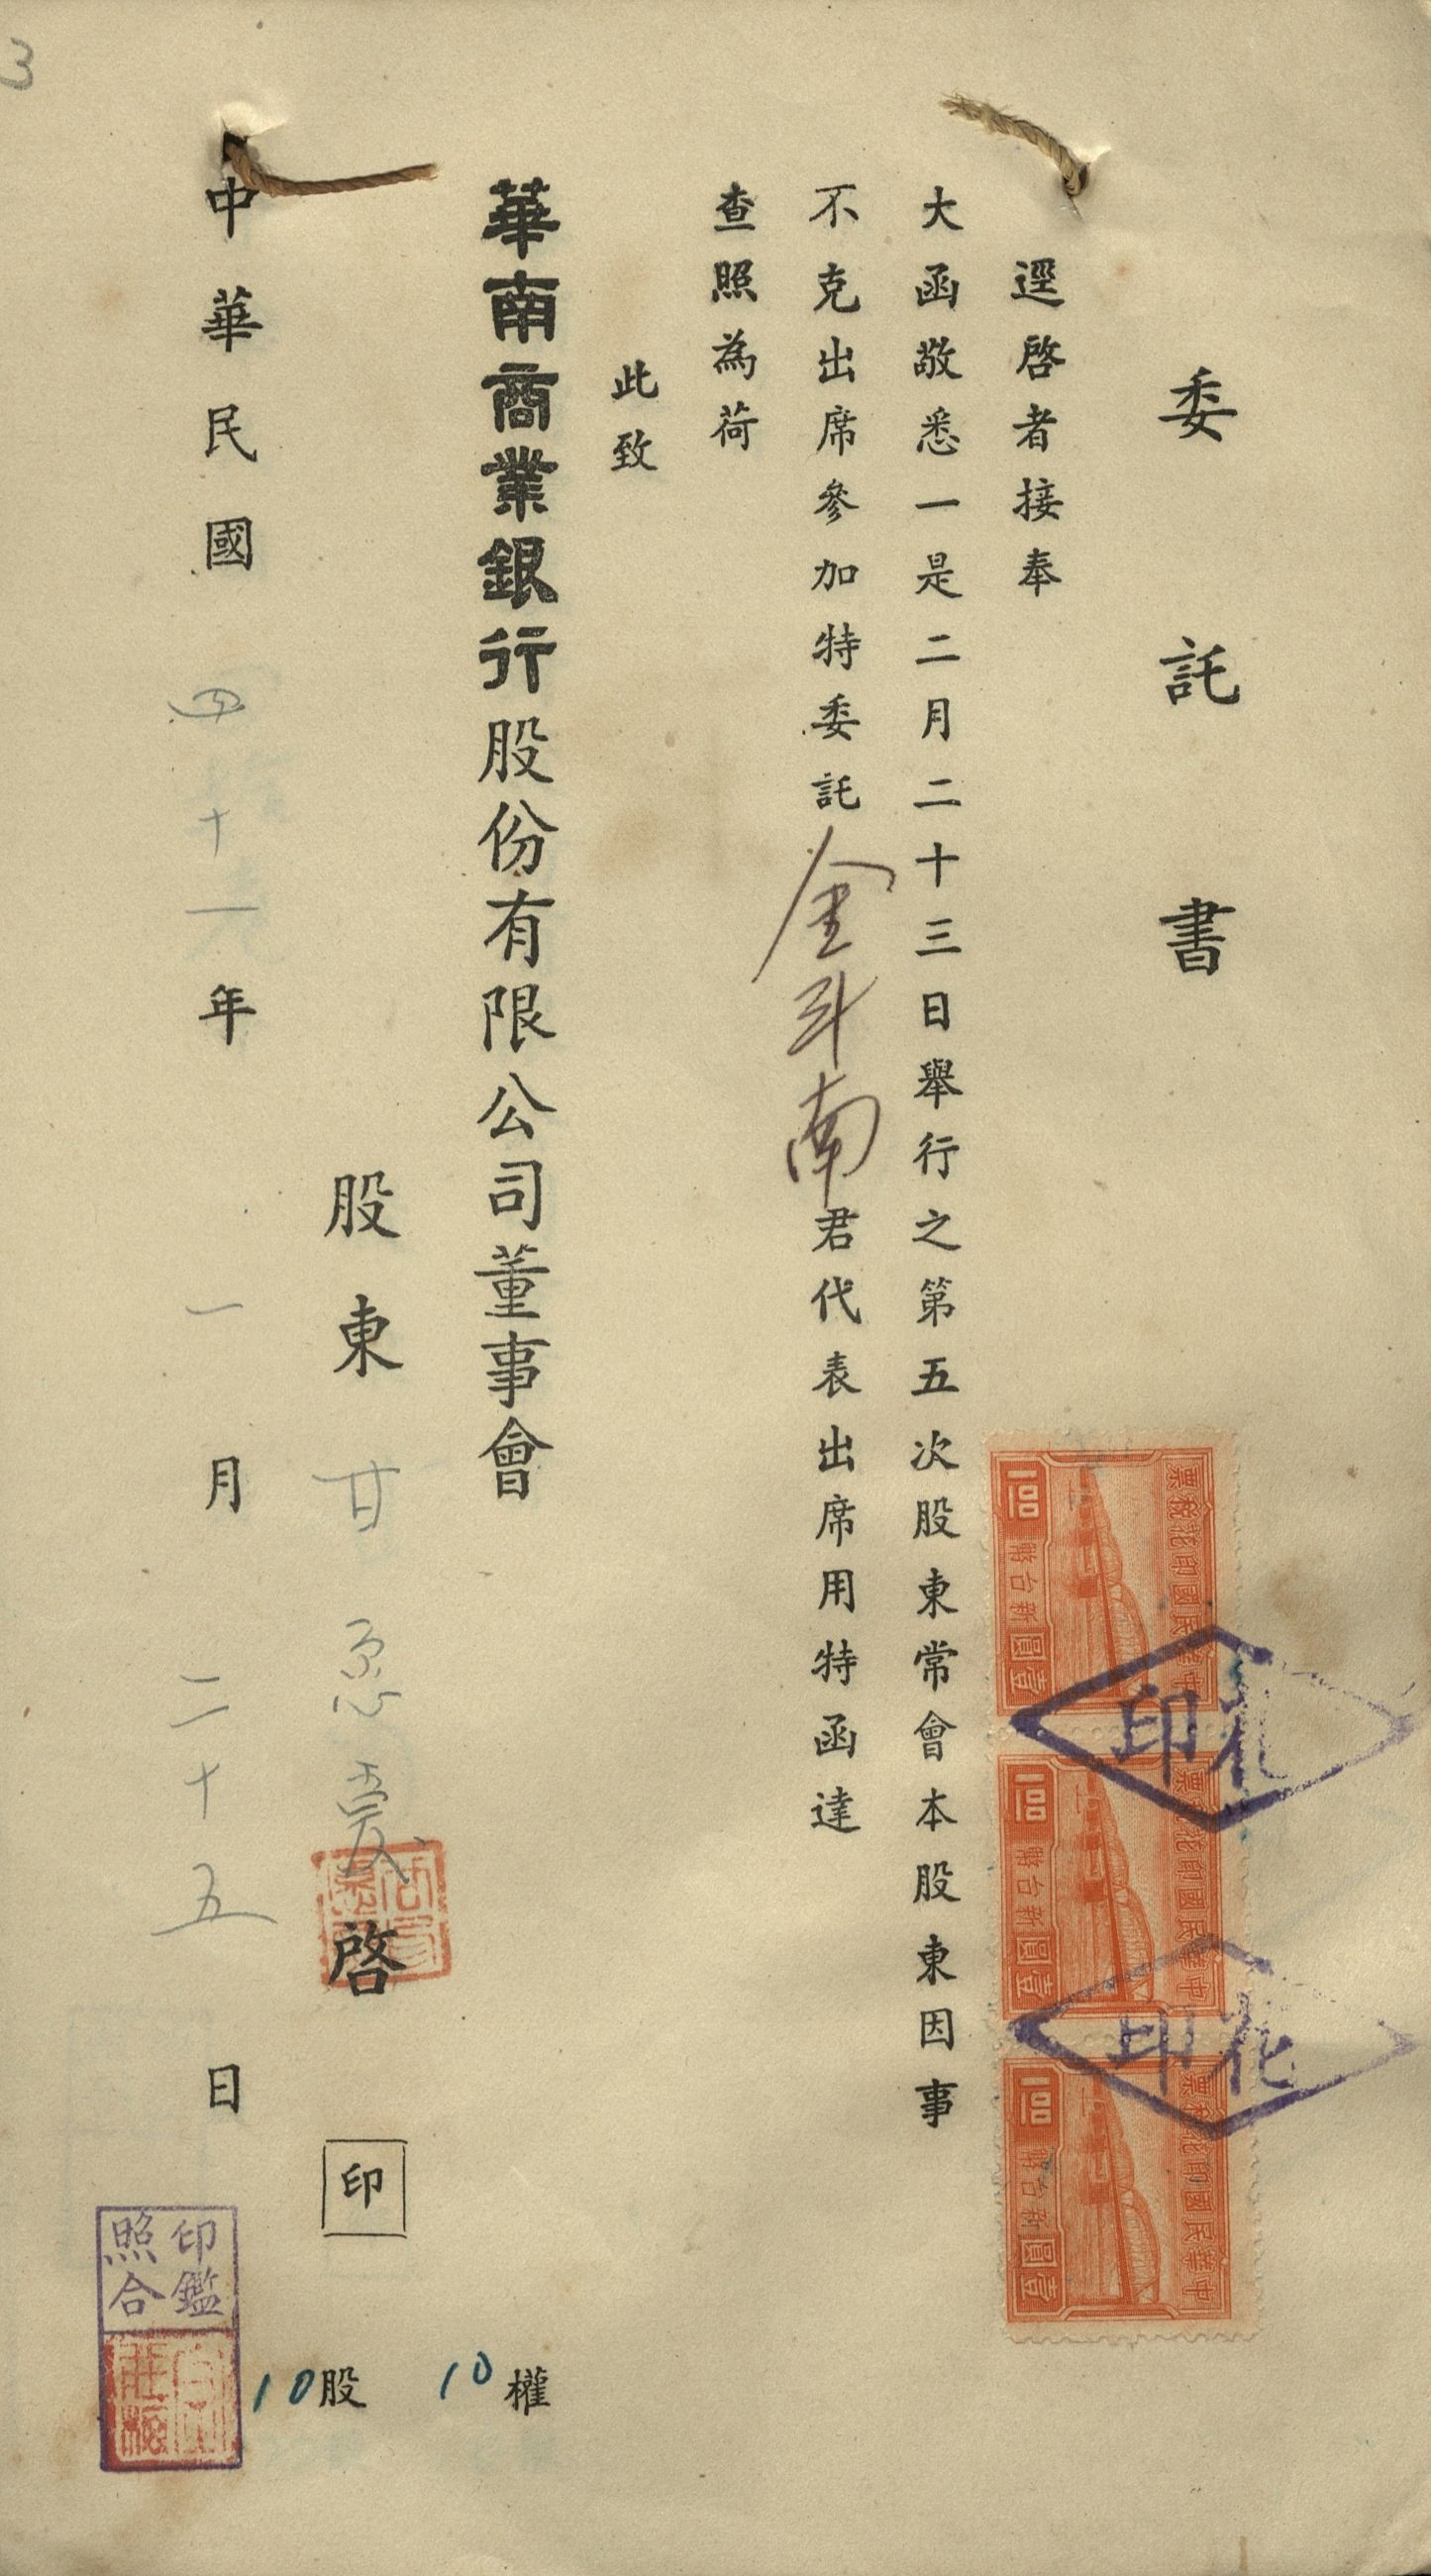 委託書
逕啓者接奉
大函敬悉一是二月二十三日舉行之第五次股東常會本股東因事
不克出席參加特委託金斗南君代表出席用特函達
查照為荷
此致
華南商業銀行股份有限公司董事會
股東甘 啓 印
中華民國四十一年一月二十五日
10權
10股
印鑑
照合
中華民國印花稅票
1.00 新台幣壹圓
中華民國印花稅票
1.00 新台幣壹圓
中華民國印花稅票
1.00 新台幣壹圓
印花
印花
3